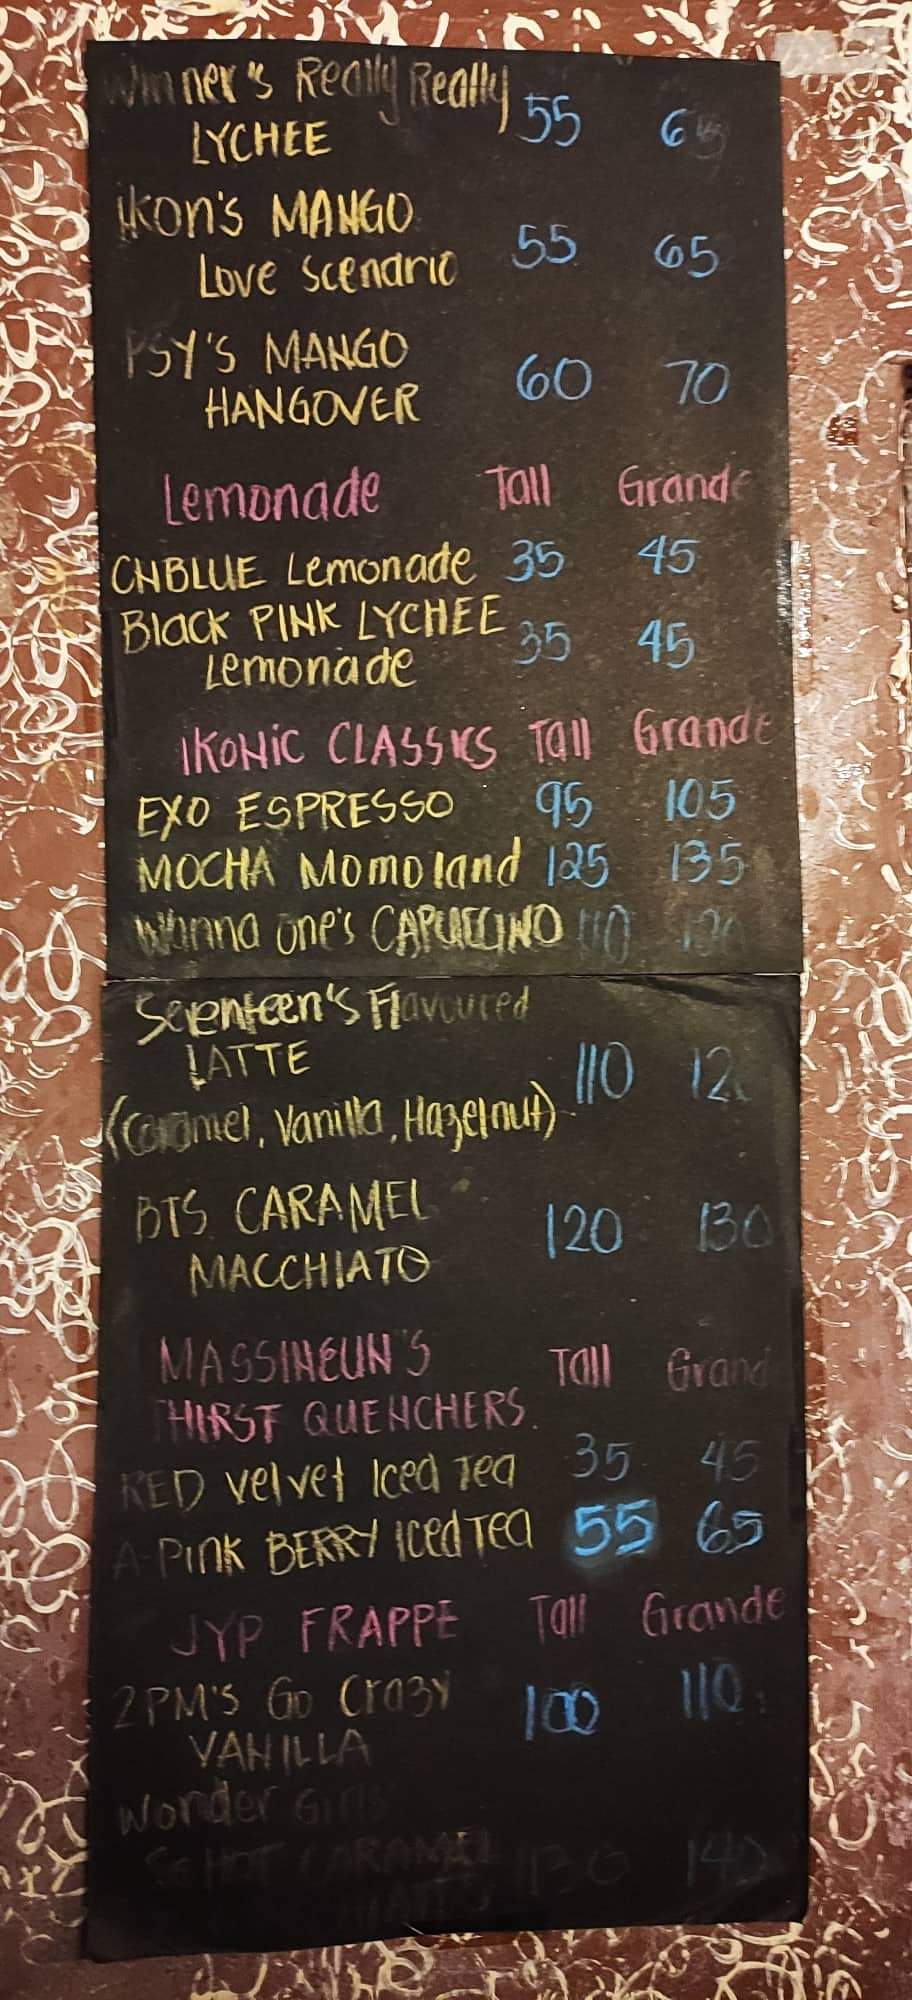 Winner's Really Really
LYCHEE 55
iKON'S MANGO
Love Scenario 55 65
PSY'S MANGO
HANGOVER 60 70
Lemonade Tall Grande
CNBLUE Lemonade 35 45
Black PINK LYCHEE
Lemonade 35 45
IKONIC CLASSICS Tall Grande
EXO ESPRESSO 95 105
MOCHA Momoland 125 135
Wanna One's CAPUCCINO 110
Seventeen's Flavoured
LATTE 110
(Caramel, Vanilla, Hazelnut)
BTS CARAMEL
MACCHIATO 120 130
MASSINEUN'S Tall Grand
THIRST QUENCHERS.
RED Velvet Iced Tea 35 45
A-Pink BERRY Iced Tea 55 65
JYP FRAPPE Tall Grande
2PM's Go Crazy
VANILLA 100 110
Wonder Girls
So HOT CARAMEL 130 140